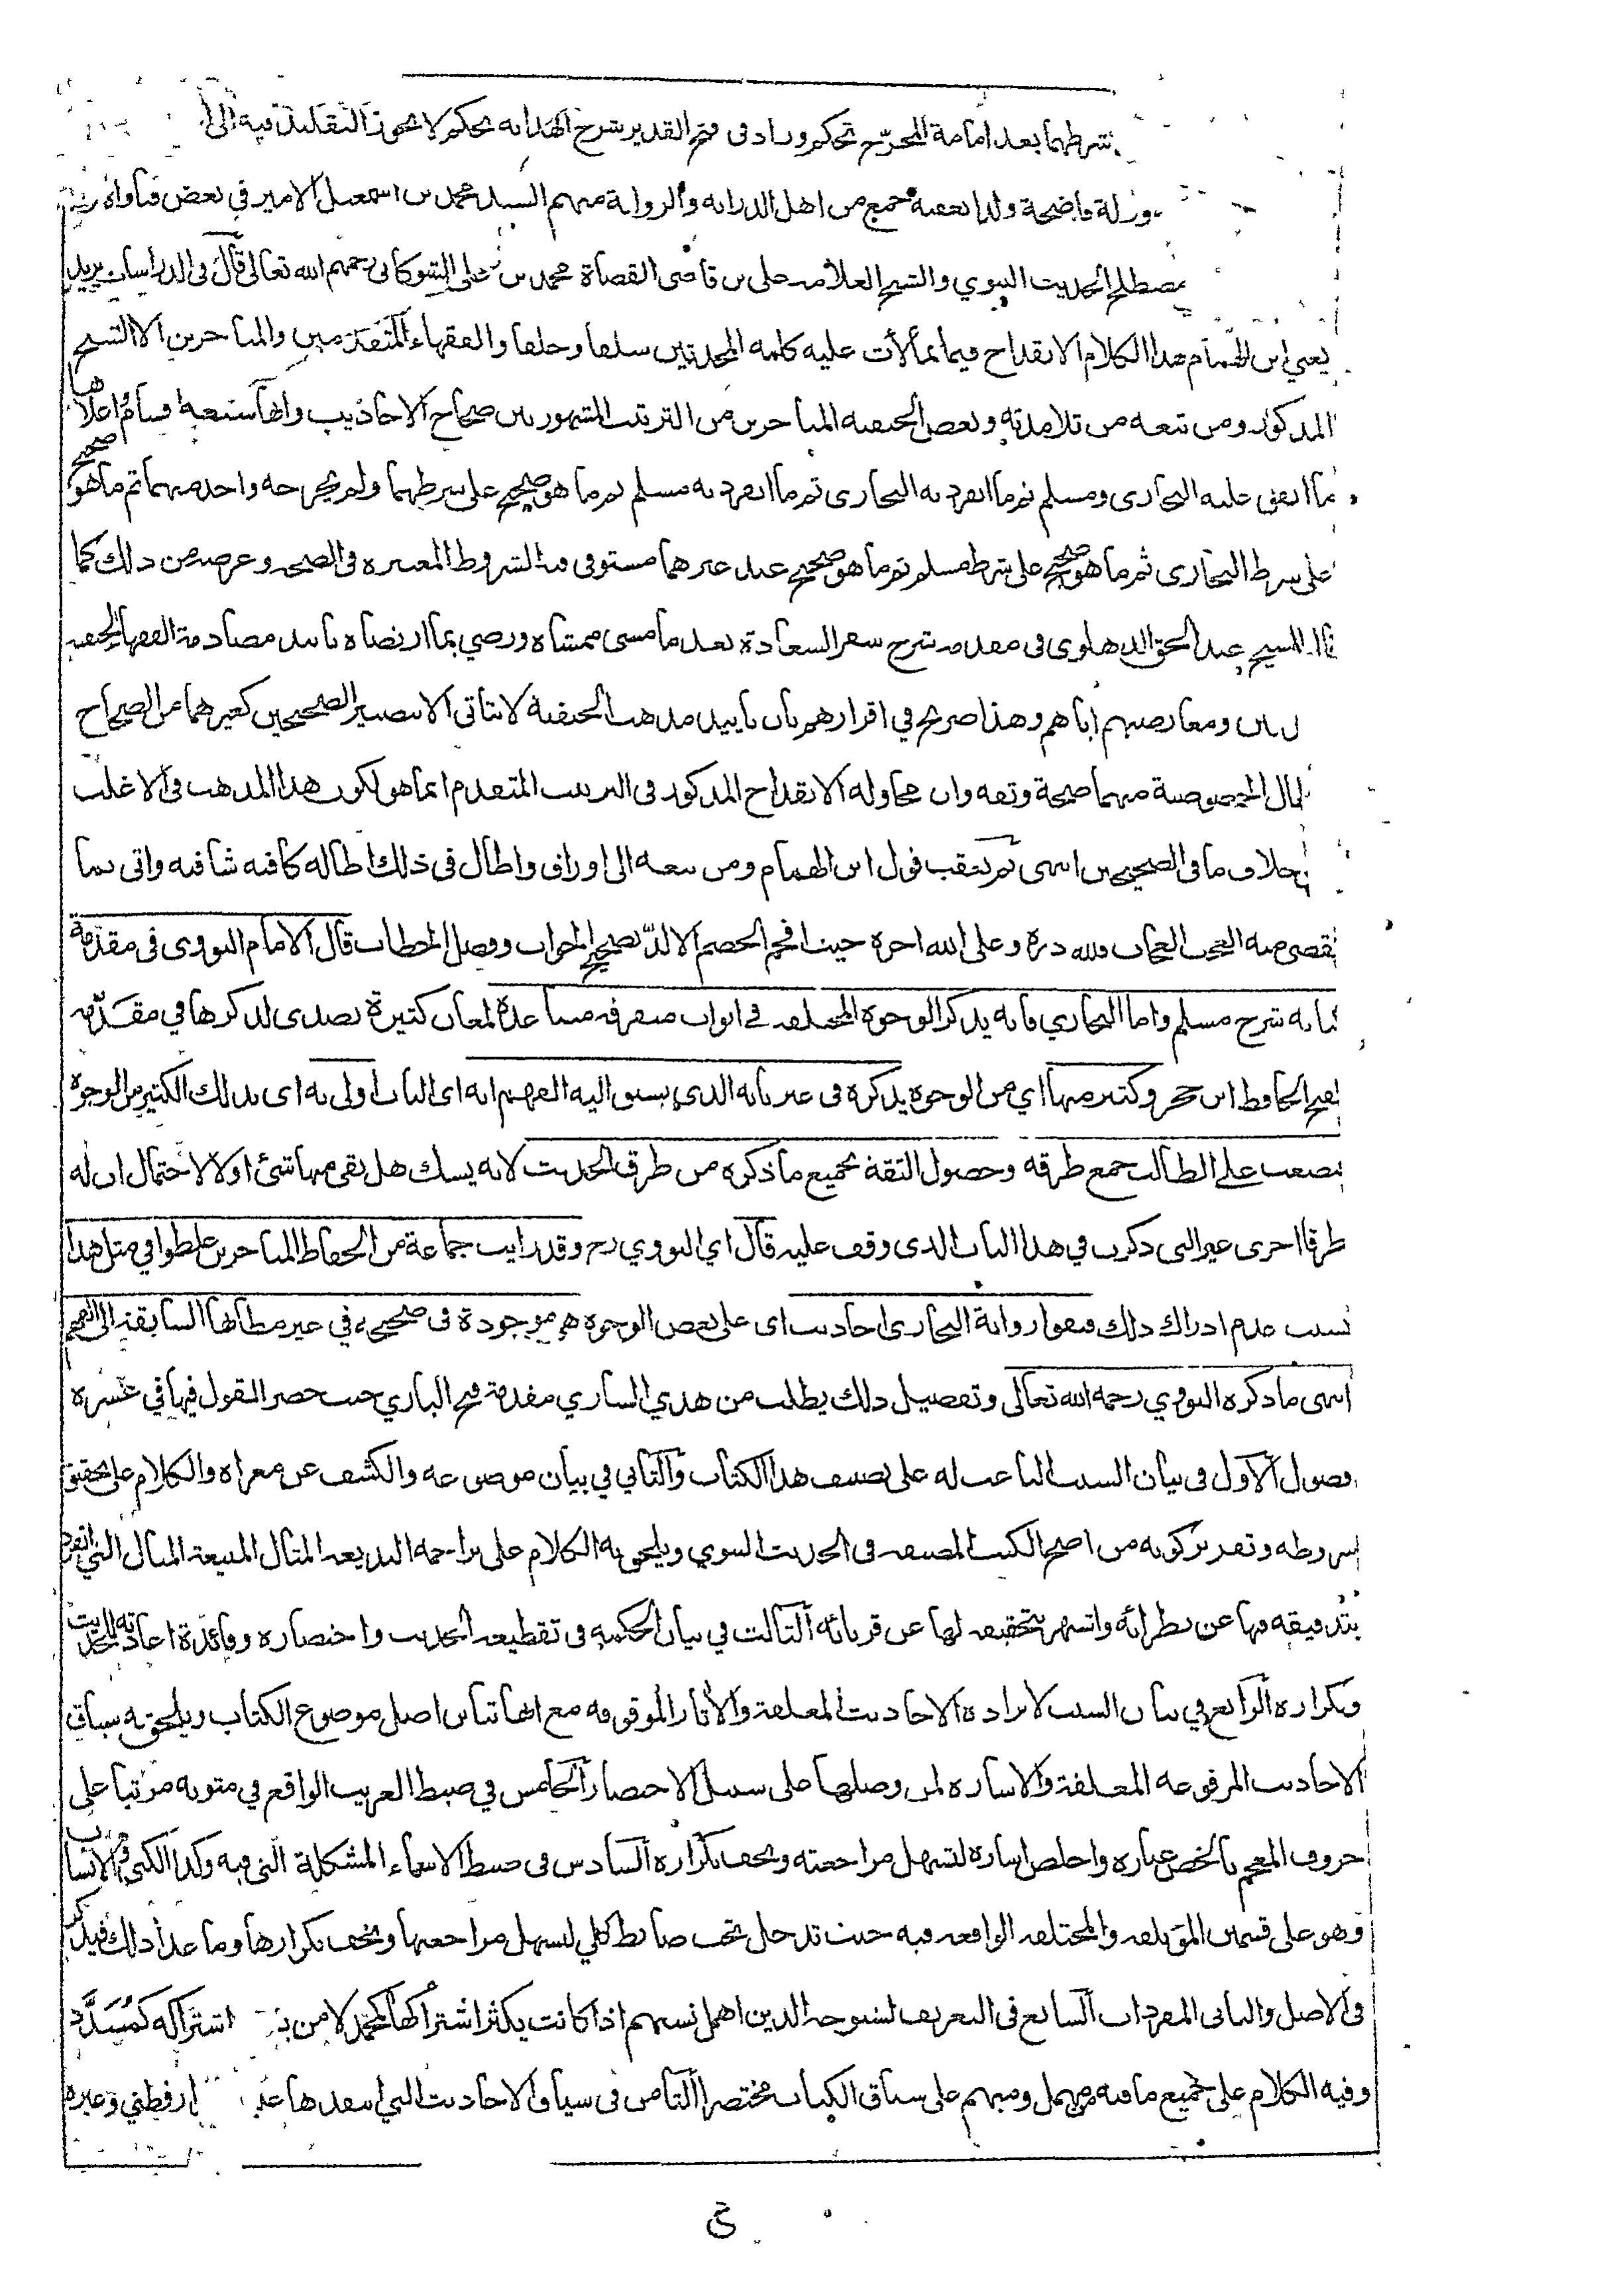 شرطهما بعد امامة المخرّج تحكم وزاد في فتح القدير شرح الهداية تحكم لا يجوز التقليد فيه الى
وزلة فاضحة ولذا تعقبه جميع من اهل الدراية والرواية منهم السيد محمد بن اسمعيل الامير في بعض فتاواه
مصطلح الحديث النبوي والشيخ العلامه علي بن قاضى القضاة محمد بن على الشوكاني رحمهم الله تعالى قال في الدراسات يريد
يعني ابن الهمام هذا الكلام الانقداح فيما تمالأت عليه كلمة المحدثين سلفا وخلفا والفقهاء المتقدمين والمتاخرين الا الشيخ
المذكور ومن تبعه من تلامذته وبعض الحنفيه المتاخرين من الترتيب المشهور بين صحاح الاحاديث وانها سبعة اقسام اعلاها
ما اتفق عليه البخارى ومسلم ثم ما انفرد به البخارى ثم ما انفرد به مسلم ثم ما هو صحيح على شرطهما ولم يخرجه واحد منهما ثم ما هو صحيح
على شرط البخارى ثم ما هو صحيح على شرط مسلم ثم ما هو صحيح عند غيرهما مستوفى فيه الشروط المعتبره في الصحه وغرضه من ذلك كما
قال الشيخ عبد الحق الدهلوى في مقدمه شرح سفر السعادة بعد ما مسى ممشاه ورضي بما ارتضاه تاييد مصادمة الفقهاء الحنفيه
ومعارضتهم اياهم وهذا صريح في اقرارهم بان تاييد مذهب الحنفية لا يتاتى الا بتصيير الصحيحين كغيرهما من الصحاح
الخصوصية منهما صحة وثقه وان محاوله الانقداح المذكور فى الترتيب المتقدم انما هو لكون هذا المذهب في الاغلب
بخلاف ما في الصحيحين انتهى ثم تعقب قول ابن الهمام ومن تبعه الى اوراق واطال في ذلك اطاله كافيه شافيه واتى بما
يقضى منه العجب العجاب ولله دره وعلى الله اجره حيث افحم الخصم الالدّ بصحيح الجواب وفصل الخطاب قال الامام النووى في مقدمة
كتابه شرح مسلم واما البخاري فانه يذكر الوجوه المختلفه في ابواب متفرقه متباعدة لمعان كثيرة تصدى لذكرها في مقدّمه
الفتح الحافظ ابن حجر وكثير منها اي من الوجوه يذكره في غير بابه الذي يسبق اليه الفهم انه اى الباب اولى به اى بذلك الكثير من الوجوه
فيصعب على الطالب جمع طرقه وحصول الثقة بجميع ما ذكره من طرق الحديث لانه يشك هل بقى منها شئ او لا لاحتمال ان له
طرقا اخرى غير التى ذكرت في هذا الباب الذى وقف عليه قال اي النووي رح وقد رايت جماعة من الحفاظ المتاخرين غلطوا في مثل هذا
بسبب عدم ادراك ذلك فنفوا رواية البخارى احاديث اى على بعض الوجوه هي موجودة في صحيحه في غير مظانها السابقة الى الفهم
انتهى ما ذكره النووي رحمه الله تعالى وتفصيل ذلك يطلب من هدي الساري مقدمة فتح الباري حيث حصر القول فيها في عشره
فصول الاول في بيان السبب الباعث له على تصنيف هذا الكتاب والثاني في بيان موضوعه والكشف عن مغزاه والكلام على تحقيق
شروطه وتقرير كونه من اصح الكتب المصنفه فى الحديث النبوي ويلحق به الكلام على تراجمه البديعه المثال المنيعة المنال التي انفرد
بتدقيقه فيها عن نظرائه واشتهر بتحقيقه لها عن قرنائه الثالث في بيان الحكمة في تقطيعه الحديث واختصاره وفائدة اعادته للحديث
وتكراره الرابع في بيان السبب لايراده الاحاديث المعلقة والاثار الموقوفه مع انها تباين اصل موضوع الكتاب ويلحق به سياق
الاحاديث المرفوعه المعلقة والاشاره لمن وصلها على سبيل الاختصار الخامس في ضبط الغريب الواقع في متونه مرتبا على
حروف المعجم بالخص عباره واخلص اشارة لتسهل مراجعته ويخف تكراره السادس في ضبط الاسماء المشكلة التى فيه وكذا الكنى والانساب
وهو على قسمين المؤتلفه والمختلفه الواقعه فيه حيث تدخل تحت ضابط كلي لتسهل مراجعتها ويخف تكرارها وما عدا ذلك فيذكر
في الاصل والثانى المفردات السابع في التعريف لشيوخه الذين اهمل نسبهم اذا كانت يكثر اشتراكها كمحمد لا من اشتراكه كمسدّد
وفيه الكلام على جميع ما فيه مهمل ومبهم على سياق الكتاب مختصرا الثامن في سياق الاحاديث التي انتقدها وغيره